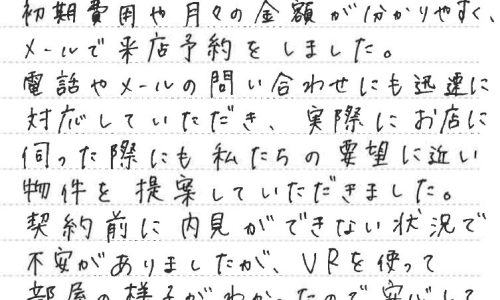 初期費用や月々の金額が分かりやすく、
メールで来店予約をしました。
電話やメールの問い合わせにも迅速に
対応していただき、実際にお店に
伺った際にも私たちの要望に近い
物件を提案していただきました。
契約前に内見ができない状況で
不安がありましたが、VRを使って
部屋の様子がわかったので安心して